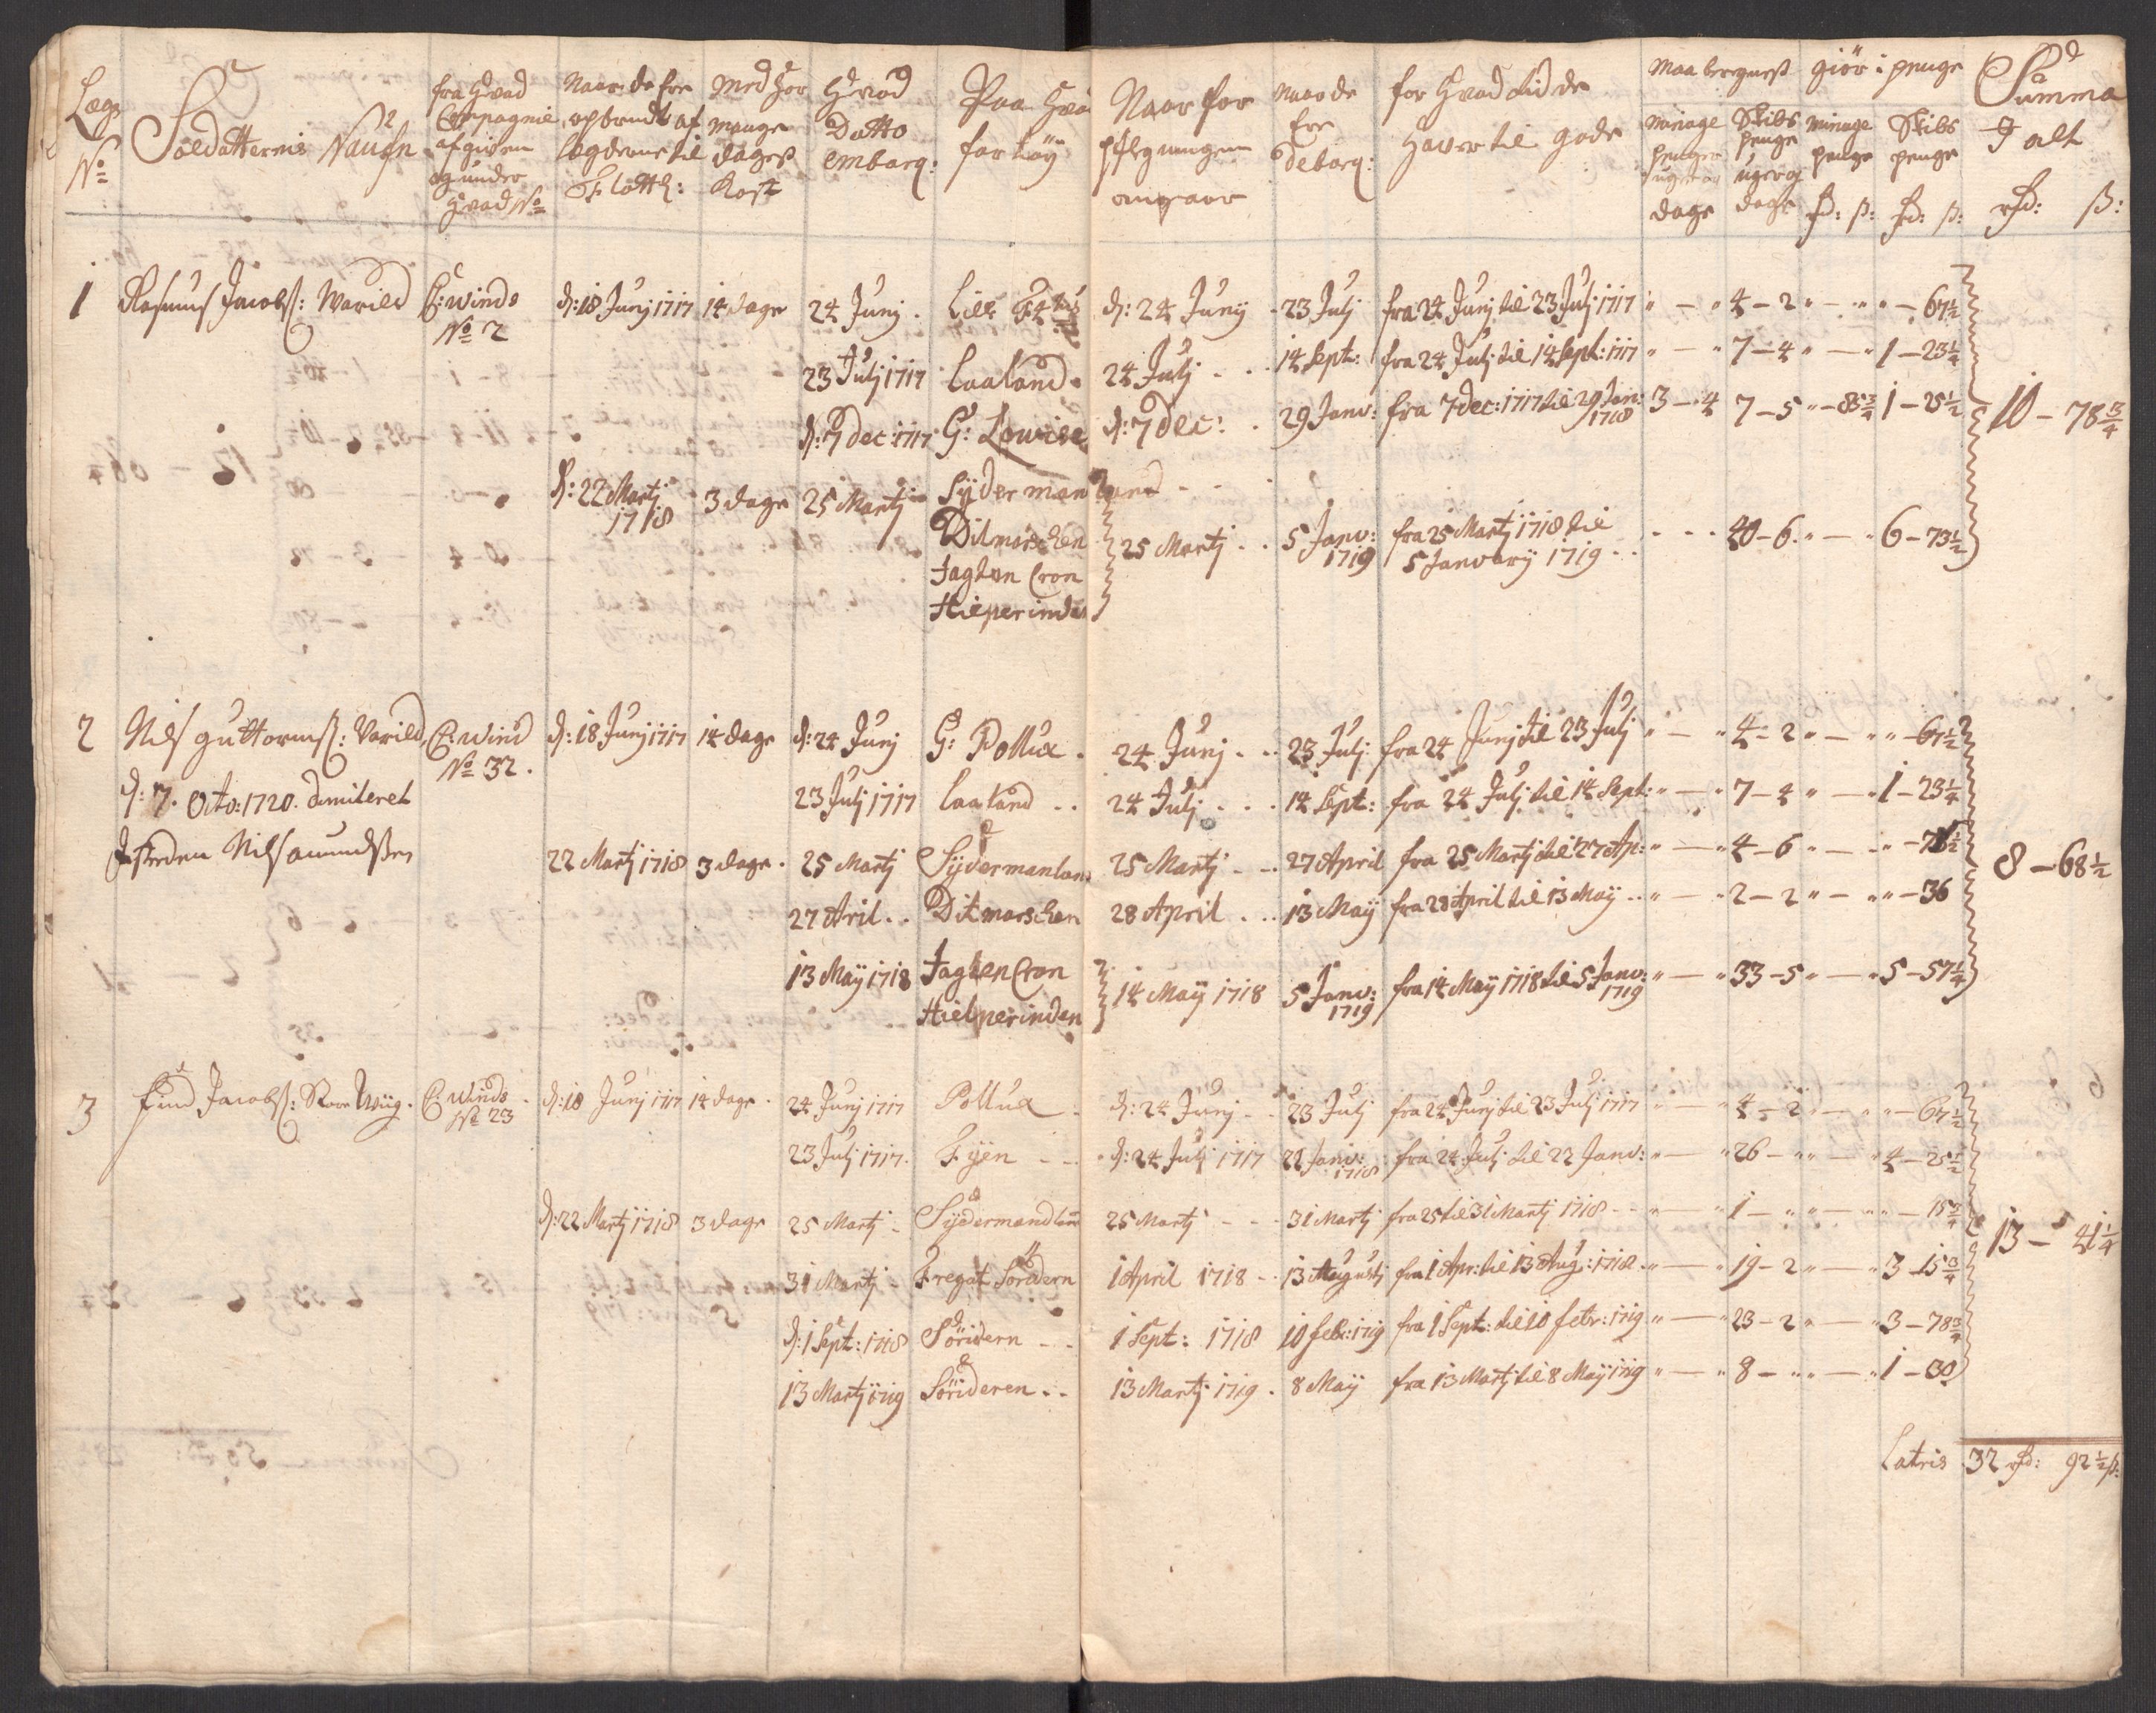 Lægs No
Soldatternis Naufn
fra Hvad Compagnie afgifven og under Hvad No
Naar de ere opbrudt af lægderne til Flotten:
Med Hvor mange dages Kost
Hvad Datto embarq:
Paa Hvad fartøy
Naar for pflegningen angaar
Naar de Ere debarq:
for Hvad tid de Haver til gode
Maa beregness
minage penger uger og dage
Skibs penge uger og dage
giör i penge
minage penge rd: ß:
Skibs penge rd: ß:
Summa I alt
rd: ß:
1 Rasmus Jacobs: Warild C: Winds No 2 d: 18 Junj 1717 14 dage 24 Junj . Lill d: 24 Junij - 23 Julj fra 24 Junj til 23 Julj 1717 " — " 4 – 2 " — " " – 67½
23 Julj 1717 Laaland . 24 Julj - . . 14 Sept: fra 24 Julj til 14 Sept: 1717 " — " 7 – 4 " — " 1 – 23¼
d: 7 dec: 1717 G: Lowise d: 7 dec: . 29 Janv: fra 7 dec: 1717 til 29 Jan: 1718 3 – 4 7 – 5 " – 85¾ 1 – 25½ 10 – 78¾
d: 22 Martj 1718 3 dage 25 Martj Sydermanland - - -
Ditmarschen 25 Martj . . 5 Janv: 1719 fra 25 Martj 1718 til 5 Janvarij 1719 . . - - - 40 – 6 . " — " 6 – 73½
Jagten Cron
Hielperinden
2 Nils guttormss: Varild C: Wind No 32 . d: 18 Junj 1717 14 dage d: 24 Junj G: Pollux . 24 Junj . .. 23 Julj fra 24 Junj til 23 Julj " — " 4 – 2 " — " " – 67½
d: 7. Octo: 1720. dimiteret
23 Julj 1717 Laaland .. 24 Julj . . . 14 Sept: fra 24 Julj til 14 Sept: " — " 7 – 4 " — " 1 – 23¼
Nils amundsen
22 Martj 1718 3 dage . 25 Martj Sydermanland 25 Martj . .. 27 April fra 25 Martj til 27 Ap: " — " 4 – 6 " — " " – 8 – 68½
27 Aril .. Ditmarschen 28 April . .. 13 Maij fra 28 April til 13 Maij .. " — " 2 – 2 " — " " – 36
13 Maij 1718 Jagten Cron Hielperinden 14 Maij 1718 5 Janv: 1719 fra 14 Maij 1718 til 5 Janv: 1719 " — " 33 – 5 " — " 5 – 57¼
3 Find Jacobs: C: Winds No 23 d: 18 Junj 1717 14 dage . 24 Junj 1717 Pollux . d: 24 Junj - - 23 Julj fra 24 Junj til 23 Julj 1717 " — " 4 – 2 " — " " – 67½
23 Julj 1717. Fyen - - d: 24 Julj 1717 22 Janv: 1718 fra 24 Julj til 22 Janv: " — " 26 – " " — " 4 – 25½
d: 22 Martj 1718 3 dage 25 Martj - Sydermandland 25 Martj - - - 31 Martj fra 25 til 31 Martj 1718 - - " — " 1 – " " — " " – 15¾ 13 – 41¼
31 Martj - Fregat Söridern 1 April 1718 - - 13 Augustj fra 1 Apr: til 13 Aug: 1718 - " — " 19 – 2 " — " 3 – 15¾
d: 1 Sept: 1718 Söridern - - 1 Sept: 1718 10 febr: 1719 fra 1 Sept: til 10 febr: 1719 " — " 23 – 2 " — " 3 – 78¾
13 Martj 1719 Sörideren .. 13 Martj 1719 . 8 Maij fra 13 Martj til 8 Maij 1719 " — " 8 – " " — " 1 – 30
Latris 32 rd: 92½ ß: